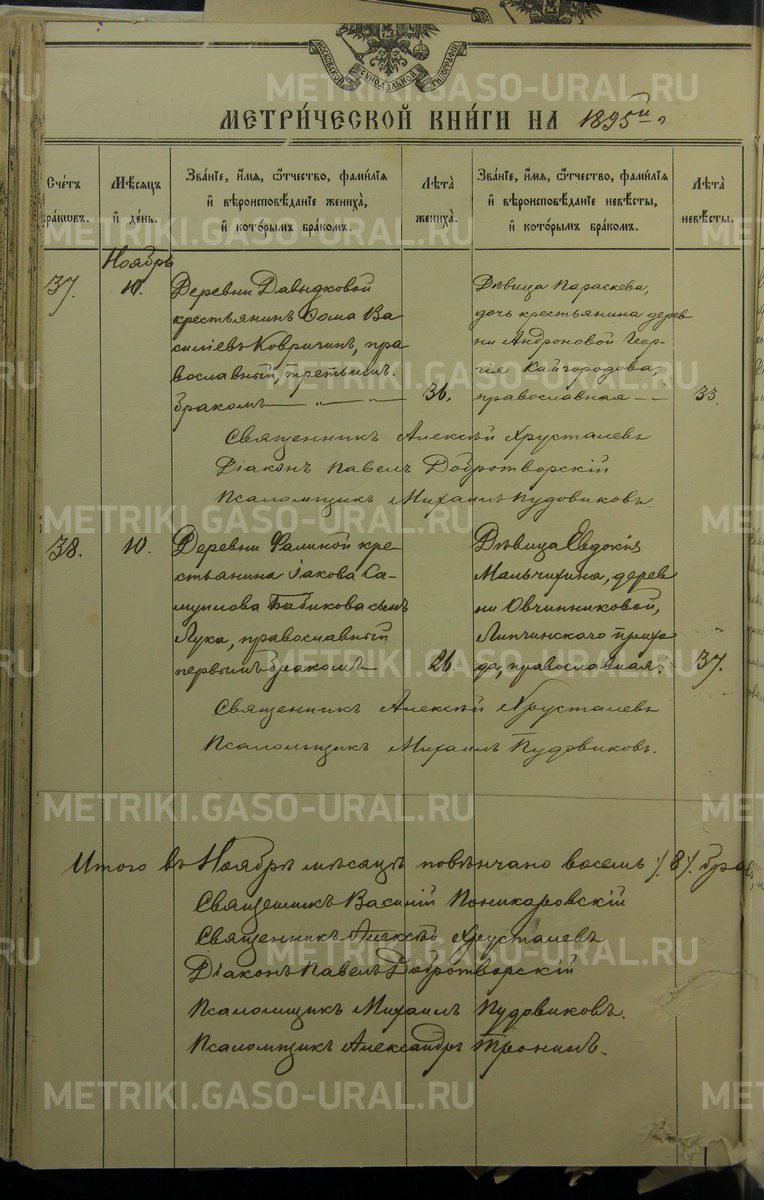 МОСКОВСКОЙ СѴНОДАЛЬНОЙ ТИПОГРАФІИ
МЕТРИ́ЧЕСКОЙ КНИ́ГИ НА 1895й
Сче́тъ бра́ковъ.
Мѣ́сяцъ и҆ де́нь.
Зва́нїе, и҆́мѧ, ѻ҆́тчество, фамилїѧ и҆ вѣроисповѣ́данїе жениха̀, и҆ кото́рымъ бра́комъ.
Лѣ́та жениха̀.
Зва́нїе, и҆́мѧ, ѻ҆́тчество, фамилїѧ и҆ вѣроисповѣ́данїе невѣ́сты, и҆ кото́рымъ бра́комъ.
Лѣ́та невѣ́сты.
Ноябрь
37.
10.
Деревни Давыдковой
крестьянинъ Ѳома Ва
силіевъ Ковригинъ, пра
вославный, третьимъ
бракомъ
36.
Дѣвица Параскева,
дочь крестьянина дерев
ни Андроновой Геор-
гія Кайгородова,
православная
33.
Священникъ Алексѣй Хрусталевъ
Діаконъ Павелъ Добротворскій
Псаломщикъ Михаилъ Пудовиковъ.
38.
10.
Деревни Фалиной кре-
стьянина Іакова Са-
муилова Бабикова сынъ
Лука, православный
первымъ бракомъ
26.
Дѣвица Евдокія
Мальчихина, дерев
ни Овчинниковой,
Липчинскаго прихо
да, православная.
37.
Священникъ Алексѣй Хрусталевъ
Псаломщикъ Михаилъ Пудовиковъ.
Итого въ Ноябрѣ мѣсяцѣ повѣнчано восемь /8/.
Священникъ Пономаровскій
Священникъ Алексѣй Хрусталевъ
Діаконъ Павелъ Добротворскій
Псаломщикъ Михаилъ Пудовиковъ.
Псаломщикъ Александръ Тронинъ.
METRIKI.GASO-URAL.RU